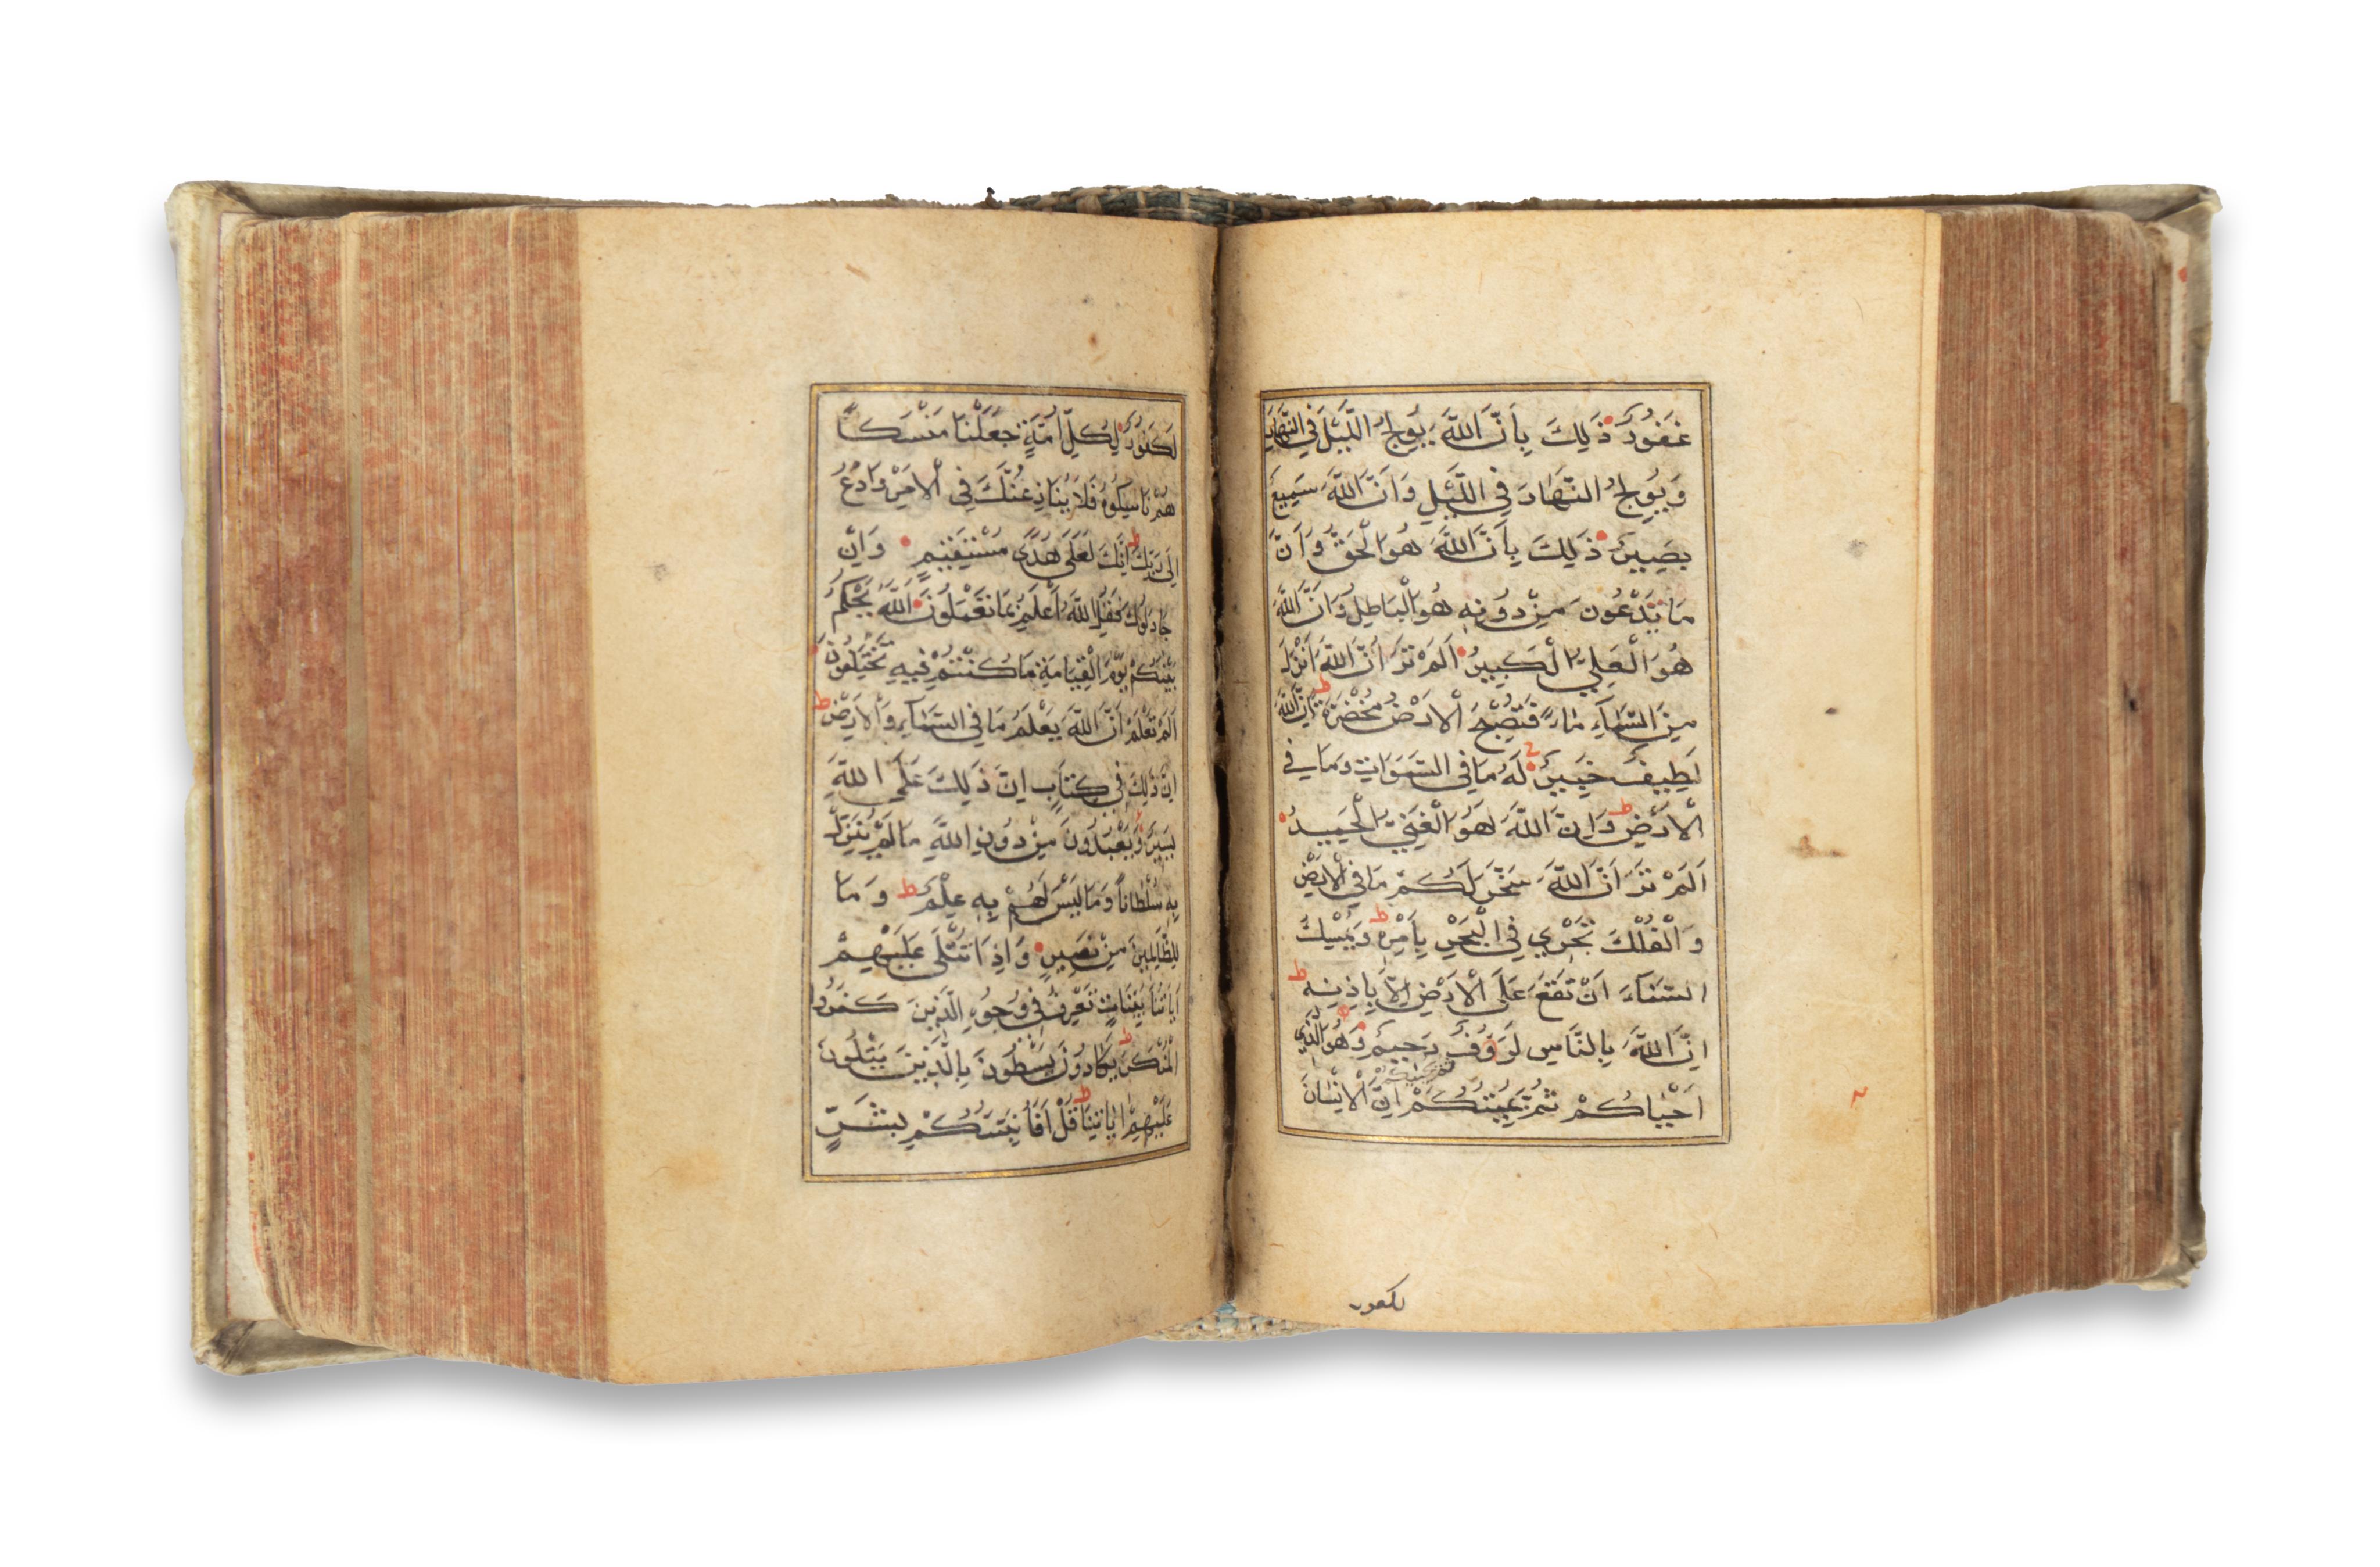 غَفُورٌ ذَلِكَ بِأَنَّ اللَّهَ يُولِجُ اللَّيْلَ فِي النَّهَارِ
وَيُولِجُ النَّهَارَ فِي اللَّيْلِ وَأَنَّ اللَّهَ سَمِيعٌ
بَصِيرٌ ذَلِكَ بِأَنَّ اللَّهَ هُوَ الْحَقُّ وَأَنَّ
مَا يَدْعُونَ مِنْ دُونِهِ هُوَ الْبَاطِلُ وَأَنَّ اللَّهَ
هُوَ الْعَلِيُّ الْكَبِيرُ أَلَمْ تَرَ أَنَّ اللَّهَ أَنْزَلَ
مِنَ السَّمَاءِ مَاءً فَتُصْبِحُ الْأَرْضُ مُخْضَرَّةً ط إِنَّ اللَّهَ
لَطِيفٌ خَبِيرٌ لَهُ مَا فِي السَّمَوَاتِ وَمَا فِي
الْأَرْضِ ط وَإِنَّ اللَّهَ لَهُوَ الْغَنِيُّ الْحَمِيدُ
أَلَمْ تَرَ أَنَّ اللَّهَ سَخَّرَ لَكُمْ مَا فِي الْأَرْضِ
وَالْفُلْكَ تَجْرِي فِي الْبَحْرِ بِأَمْرِهِ ط وَيُمْسِكُ
السَّمَاءَ أَنْ تَقَعَ عَلَى الْأَرْضِ إِلَّا بِإِذْنِهِ ط
إِنَّ اللَّهَ بِالنَّاسِ لَرَؤُفٌ رَحِيمٌ وَهُوَ الَّذِي
أَحْيَاكُمْ ثُمَّ يُمِيتُكُمْ ثُمَّ يُحْيِيكُمْ إِنَّ الْإِنْسَانَ
لكفور
لَكَفُورٌ لِكُلِّ أُمَّةٍ جَعَلْنَا مَنْسَكًا
هُمْ نَاسِكُوهُ فَلَا يُنَازِعُنَّكَ فِي الْأَمْرِ وَادْعُ
إِلَى رَبِّكَ ط إِنَّكَ لَعَلَى هُدًى مُسْتَقِيمٍ وَإِنْ
جَادَلُوكَ فَقُلِ اللَّهُ أَعْلَمُ بِمَا تَعْمَلُونَ اللَّهُ يَحْكُمُ
بَيْنَكُمْ يَوْمَ الْقِيَامَةِ فِيمَا كُنْتُمْ فِيهِ تَخْتَلِفُونَ
أَلَمْ تَعْلَمْ أَنَّ اللَّهَ يَعْلَمُ مَا فِي السَّمَاءِ وَالْأَرْضِ ط
إِنَّ ذَلِكَ فِي كِتَابٍ إِنَّ ذَلِكَ عَلَى اللَّهِ
يَسِيرٌ وَيَعْبُدُونَ مِنْ دُونِ اللَّهِ مَا لَمْ يُنَزِّلْ
بِهِ سُلْطَانًا وَمَا لَيْسَ لَهُمْ بِهِ عِلْمٌ ط وَمَا
لِلظَّالِمِينَ مِنْ نَصِيرٍ وَإِذَا تُتْلَى عَلَيْهِمْ
آيَاتُنَا بَيِّنَاتٍ تَعْرِفُ فِي وُجُوهِ الَّذِينَ كَفَرُوا
الْمُنْكَرَ ط يَكَادُونَ يَسْطُونَ بِالَّذِينَ يَتْلُونَ
عَلَيْهِمْ آيَاتِنَا ط قُلْ أَفَأُنَبِّئُكُمْ بِشَرٍّ